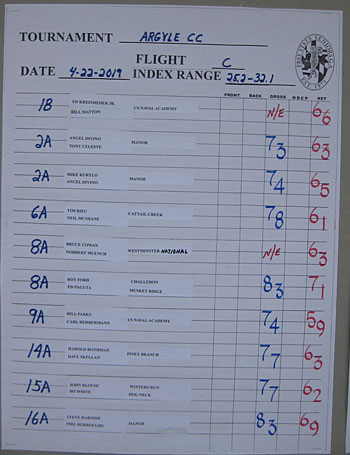 TOURNAMENT ARGYLE CC
FLIGHT C
DATE 4-22-2019 INDEX RANGE 25.2-32.1
FRONT BACK GROSS H.D.C.P. NET
1B ED KREINHEDER JR. US NAVAL ACADEMY N/E 66
BILL MATTON
2A ANGEL DIVINO MANOR 73 63
TONY CELESTE
2A MIKE KURYLO MANOR 74 65
ANGEL DIVINO
6A TIM RIEU CATTAIL CREEK 78 61
NEIL MCSHANE
8A BRUCE COWAN WESTMINSTER NATIONAL N/E 63
NORBERT MUENCH
8A RON FORD CHALLEDON 83 71
ED PALUTA MUSKET RIDGE
9A BILL PARKS US NAVAL ACADEMY 74 59
CARL HERBERMANN
14A HAROLD ROTHMAN PINEY BRANCH 77 63
DAVE SKELLAN
15A JOHN BLOUSE WINTERS RUN 77 62
BO WHITE HOG NECK
16A STEVE MANOR 83 69
PHIL BURROUGHS